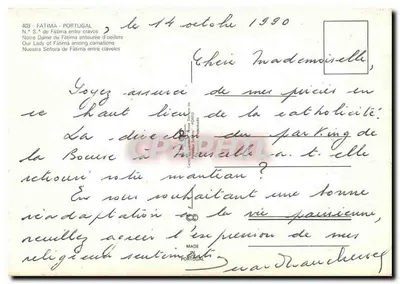 403 - FATIMA - PORTUGAL
N.ª S.ª de Fátima entre cravos
Notre Dame de Fátima entourée d'oeillets
Our Lady of Fátima among carnations
Nuestra Señora de Fátima entre claveles
, le 14 octobre 1990
Chère Mademoiselle,
Soyez assurée de mes prières en
ce haut lieu de la catholicité.
La direction du parking de
la Bourse à Marseille a-t-elle
retrouvé votre manteau ?
En vous souhaitant une bonne
réadaptation à la vie parisienne,
veuillez agréer l'expression de mes
religieux sentiments
MADE